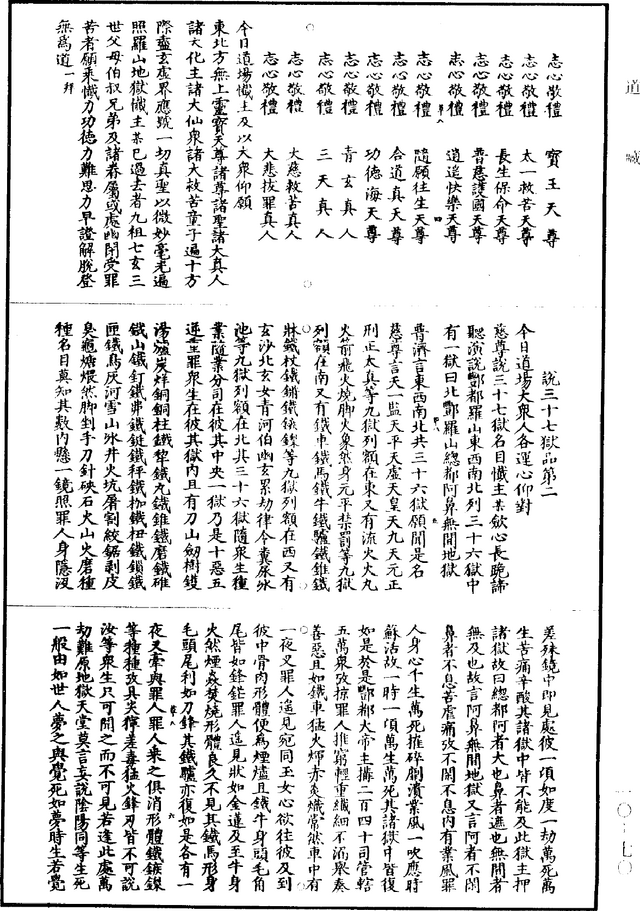 道藏
志心敬禮　寶王天尊
志心敬禮　太一救苦天尊
志心敬禮　長生保命天尊
志心敬禮　普慈護國天尊
志心敬禮　逍遙快樂天尊
志心敬禮　隨願往生天尊
志心敬禮　合道真天尊
志心敬禮　功德海天尊
志心敬禮　青玄真人
志心敬禮　三天真人
志心敬禮　大慈救苦真人
志心敬禮　大悲拔罪真人
今日道場懺主及以大眾仰願
東北方無上靈寶天尊諸尊諸聖諸大真人
諸大化主諸大仙眾諸大救苦童子遍十方
際盡玄虛界應號一切真聖以微妙毫光遍
照羅山地獄懺主某已過去者九祖七玄三
世父母伯叔兄弟及諸眷屬或處幽閉受罪
苦者願乘懺力功德力難思力早證解脫登
無為道一拜
說三十七獄品第二
今日道場大眾人各運心仰對
慈尊說三十七獄名目懺主某歛心長跪諦
聽演說酆都羅山東西南北列三十六獄中
有一獄曰北酆羅山總都阿鼻無間地獄
普濟言東西南北共三十六獄願聞是名
慈尊言天一監天平天虛天皇天九天元正
刑正太真等九獄列額在東又有流火火丸
火箭飛火燒腳火象然身元平禁罰等九獄
列額在南又有鐵車鐵馬鐵牛鐵驢鐵錐鐵
牀鐵杖鐵鏘鐵鏃鏫等九獄列額在西又有
玄沙北玄女青河伯幽玄累劫律令糞尿水
池等九獄列額在北共三十六獄隨眾生種
業隨業分司在彼其中央一獄乃是十惡五
逆重罪眾生在彼其獄內且有刀山劒樹鑊
湯爐炭烊銅銅柱鐵犂鐵丸鐵錐鐵磨鐵碓
鐵山鐵釘鐵弗鐵鋌鐵秤鐵枷鐵杻鐵鎖鐵
匣鐵鳥灰河雪山氷井火坑屠割絞鋸剥皮
臭魎煻煨然腳剉手刀針硤石火山火磨種
種名目莫知其數內懸一鏡照罪人身隱沒
差殊鏡中即見處彼一頃如度一劫萬死萬
生苦痛辛酸其諸獄中皆不能及此獄主押
諸獄故曰總都阿者大也鼻者遮也無間者
無及也故言阿鼻無間地獄又言阿者不閑
鼻者不息苦虐痛攻不閑不息內有業風罪
人身心千生萬死摧碎剛濱業風一吹應時
蘇活故一時一頃萬生萬死其諸獄中皆復
如是於是酆都大帝主搆二百四十司管轄
五萬眾攻掠罪人推窮輕重纖細不漏舉奏
善惡且如鐵車猛火煿赤炎熾常然車中有
一夜叉罪人遙見宛同玉女心欲往彼及到
彼中骨肉形體便為煙爐且鐵牛身頭毛角
尾皆如鋒鋩罪人遙見狀如金蓮及至牛身
火然煙焱焚燒形體良久不見其鐵馬形身
毛頭尾利如刀鋒其鐵驢亦復如是各有一
夜叉牽與罪人罪人乘之俱消形體鐵鏃鏫
等種種攻具尖獰差毒猛火鋒刃皆不可說
汝等眾生只可聞之而不可見若逢此處萬
劫難原地獄天堂莫言妄說陰陽同等生死
一般由如世人夢之與覺死如夢時生若覺